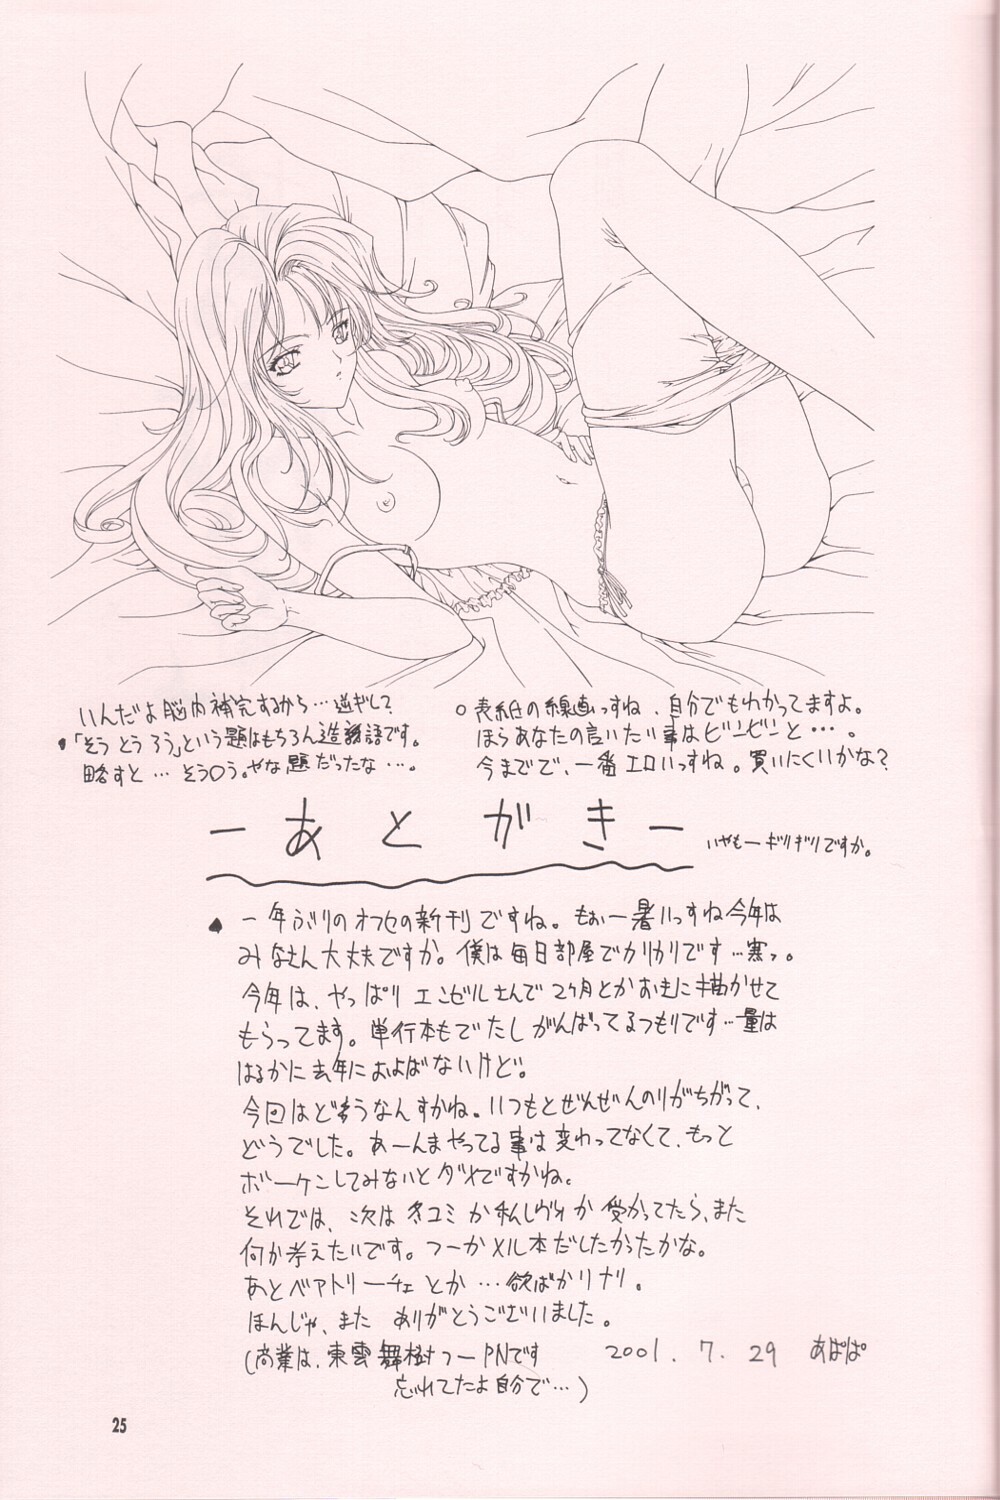 ○表紙の線画っすね、自分でもわかってますよ。
ほらあなたの言いたい事はビンビンと…。
今までで、一番エロいっすね。買いにくいかな？
いんだよ脳内補完するから…逆ぎレ？
「そうとうろう」という題はもちろん造語です。
略すと…そうろう。やな題だったな…。
ーあとがきー
いやもーギリギリですか。
♠一年ぶりのオフセの新刊ですね。もぉー暑いっすね今年は
みなさん大丈夫ですか。僕は毎日部屋でカリカリです…寒っ。
今年は、やっぱりエンゼルさんで2ヶ月とかおきに描かせて
もらってます。単行本もでたしがんばってるつもりです…量は
はるかに去年におよばないけど。
今回はどぉうなんすかね。いつもとぜんぜんのりがちがって、
どうでした。あーんまやってる事は変わってなくて、もっと
ボーケンしてみないとダメですかね。
それでは、次は冬コミか 受かってたら、また
何か考えたいです。つーかメル本だしたかったかな。
あとベアトリーチェとか…欲ばかリナリ。
ほんじゃ、また ありがとうございました。
(商業は、東雲舞樹つーPNです
忘れてたよ自分で…)
2001.7.29 あぱぱ
25